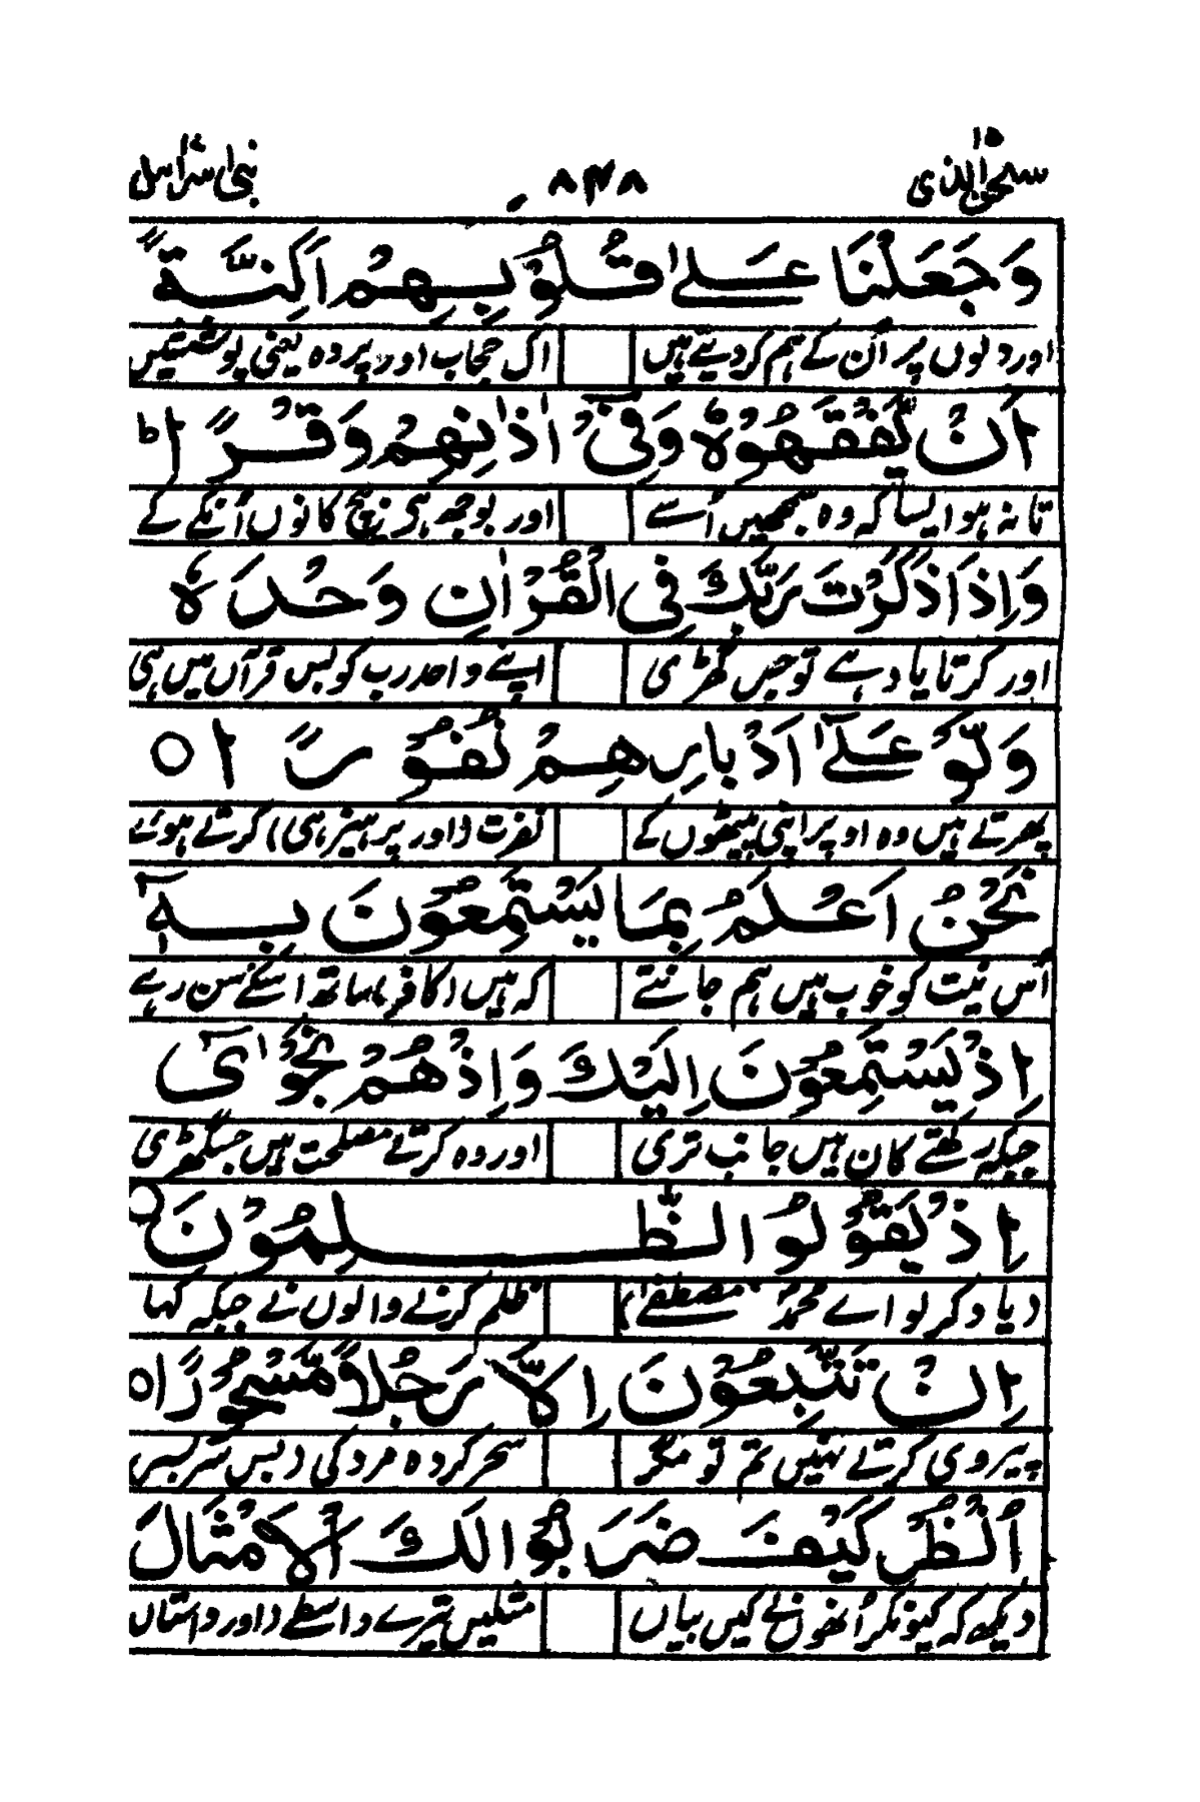 سبحن الذی ١٥ ٨٤٨ بنی اسرائیل ١٧
وَجَعَلْنَا عَلٰی قُلُوْبِهِمْ اَكِنَّةً
اور دلوں پر اُن کے ہم کر دیتے ہیں اک حجاب اور پردہ یعنی پوششیں
اَنْ يَّفْقَهُوْهُ وَفِیْۤ اٰذَانِهِمْ وَقْرًا ط
تا نہ ہو ایسا کہ وہ سمجھیں اُسے اور بوجھ ہی بیچ کانوں اُنکے کے
وَاِذَا ذَكَرْتَ رَبَّكَ فِی الْقُرْاٰنِ وَحْدَهٗ
اور کرتا یاد ہے تو جس گھڑی اپنے واحد رب کو بس قرآں میں ہی
وَلَّوْا عَلٰۤی اَدْبَارِهِمْ نُفُوْرًا ○
پھرتے ہیں وہ اوپر اپنی پیٹھوں کے نفرت (اور پرہیز ہی) کرتے ہوئے
نَحْنُ اَعْلَمُ بِمَا يَسْتَمِعُوْنَ بِهٖۤ
اُس نیت کو خوب ہیں ہم جانتے کہ ہیں (کافر) ساتھ اسکے سن رہے
اِذْ يَسْتَمِعُوْنَ اِلَيْكَ وَاِذْ هُمْ نَجْوٰۤی
جبکہ رکھتے کان ہیں جانب تری اور وہ کرتے مصلحت ہیں جس گھڑی
اِذْ يَقُوْلُ الظّٰلِمُوْنَ ○
(یاد کر تو اے محمدؐ مصطفےٰ) ظلم کرنے والوں نے جبکہ کہا
اِنْ تَتَّبِعُوْنَ اِلَّا رَجُلًا مَّسْحُوْرًا ○
پیروی کرتے نہیں تم تو مگر سحر کردہ مرد کی (بس سربسر
اُنْظُرْ كَيْفَ ضَرَبُوْا لَكَ الْاَمْثَالَ
دیکھ کہ کیونکر اُنھوں نے کیں بیاں مثلیں تیرے واسطے (اور داستاں